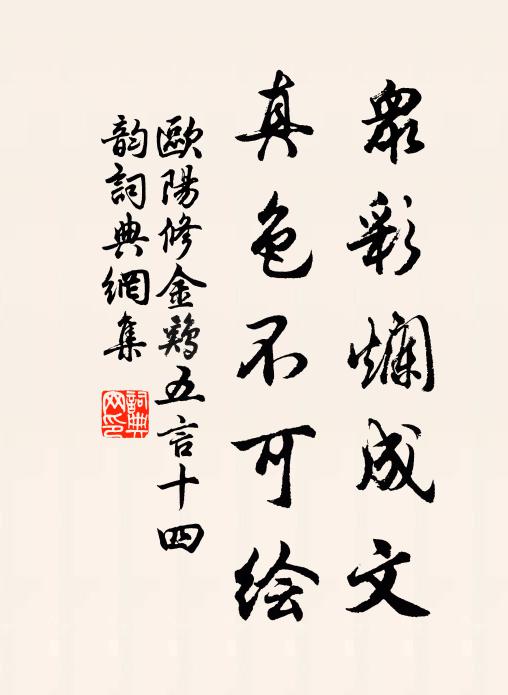 眾彩爛成文
真色不可绘
歐陽修金鷄五言十四
韵詞典網集
詞典
网印